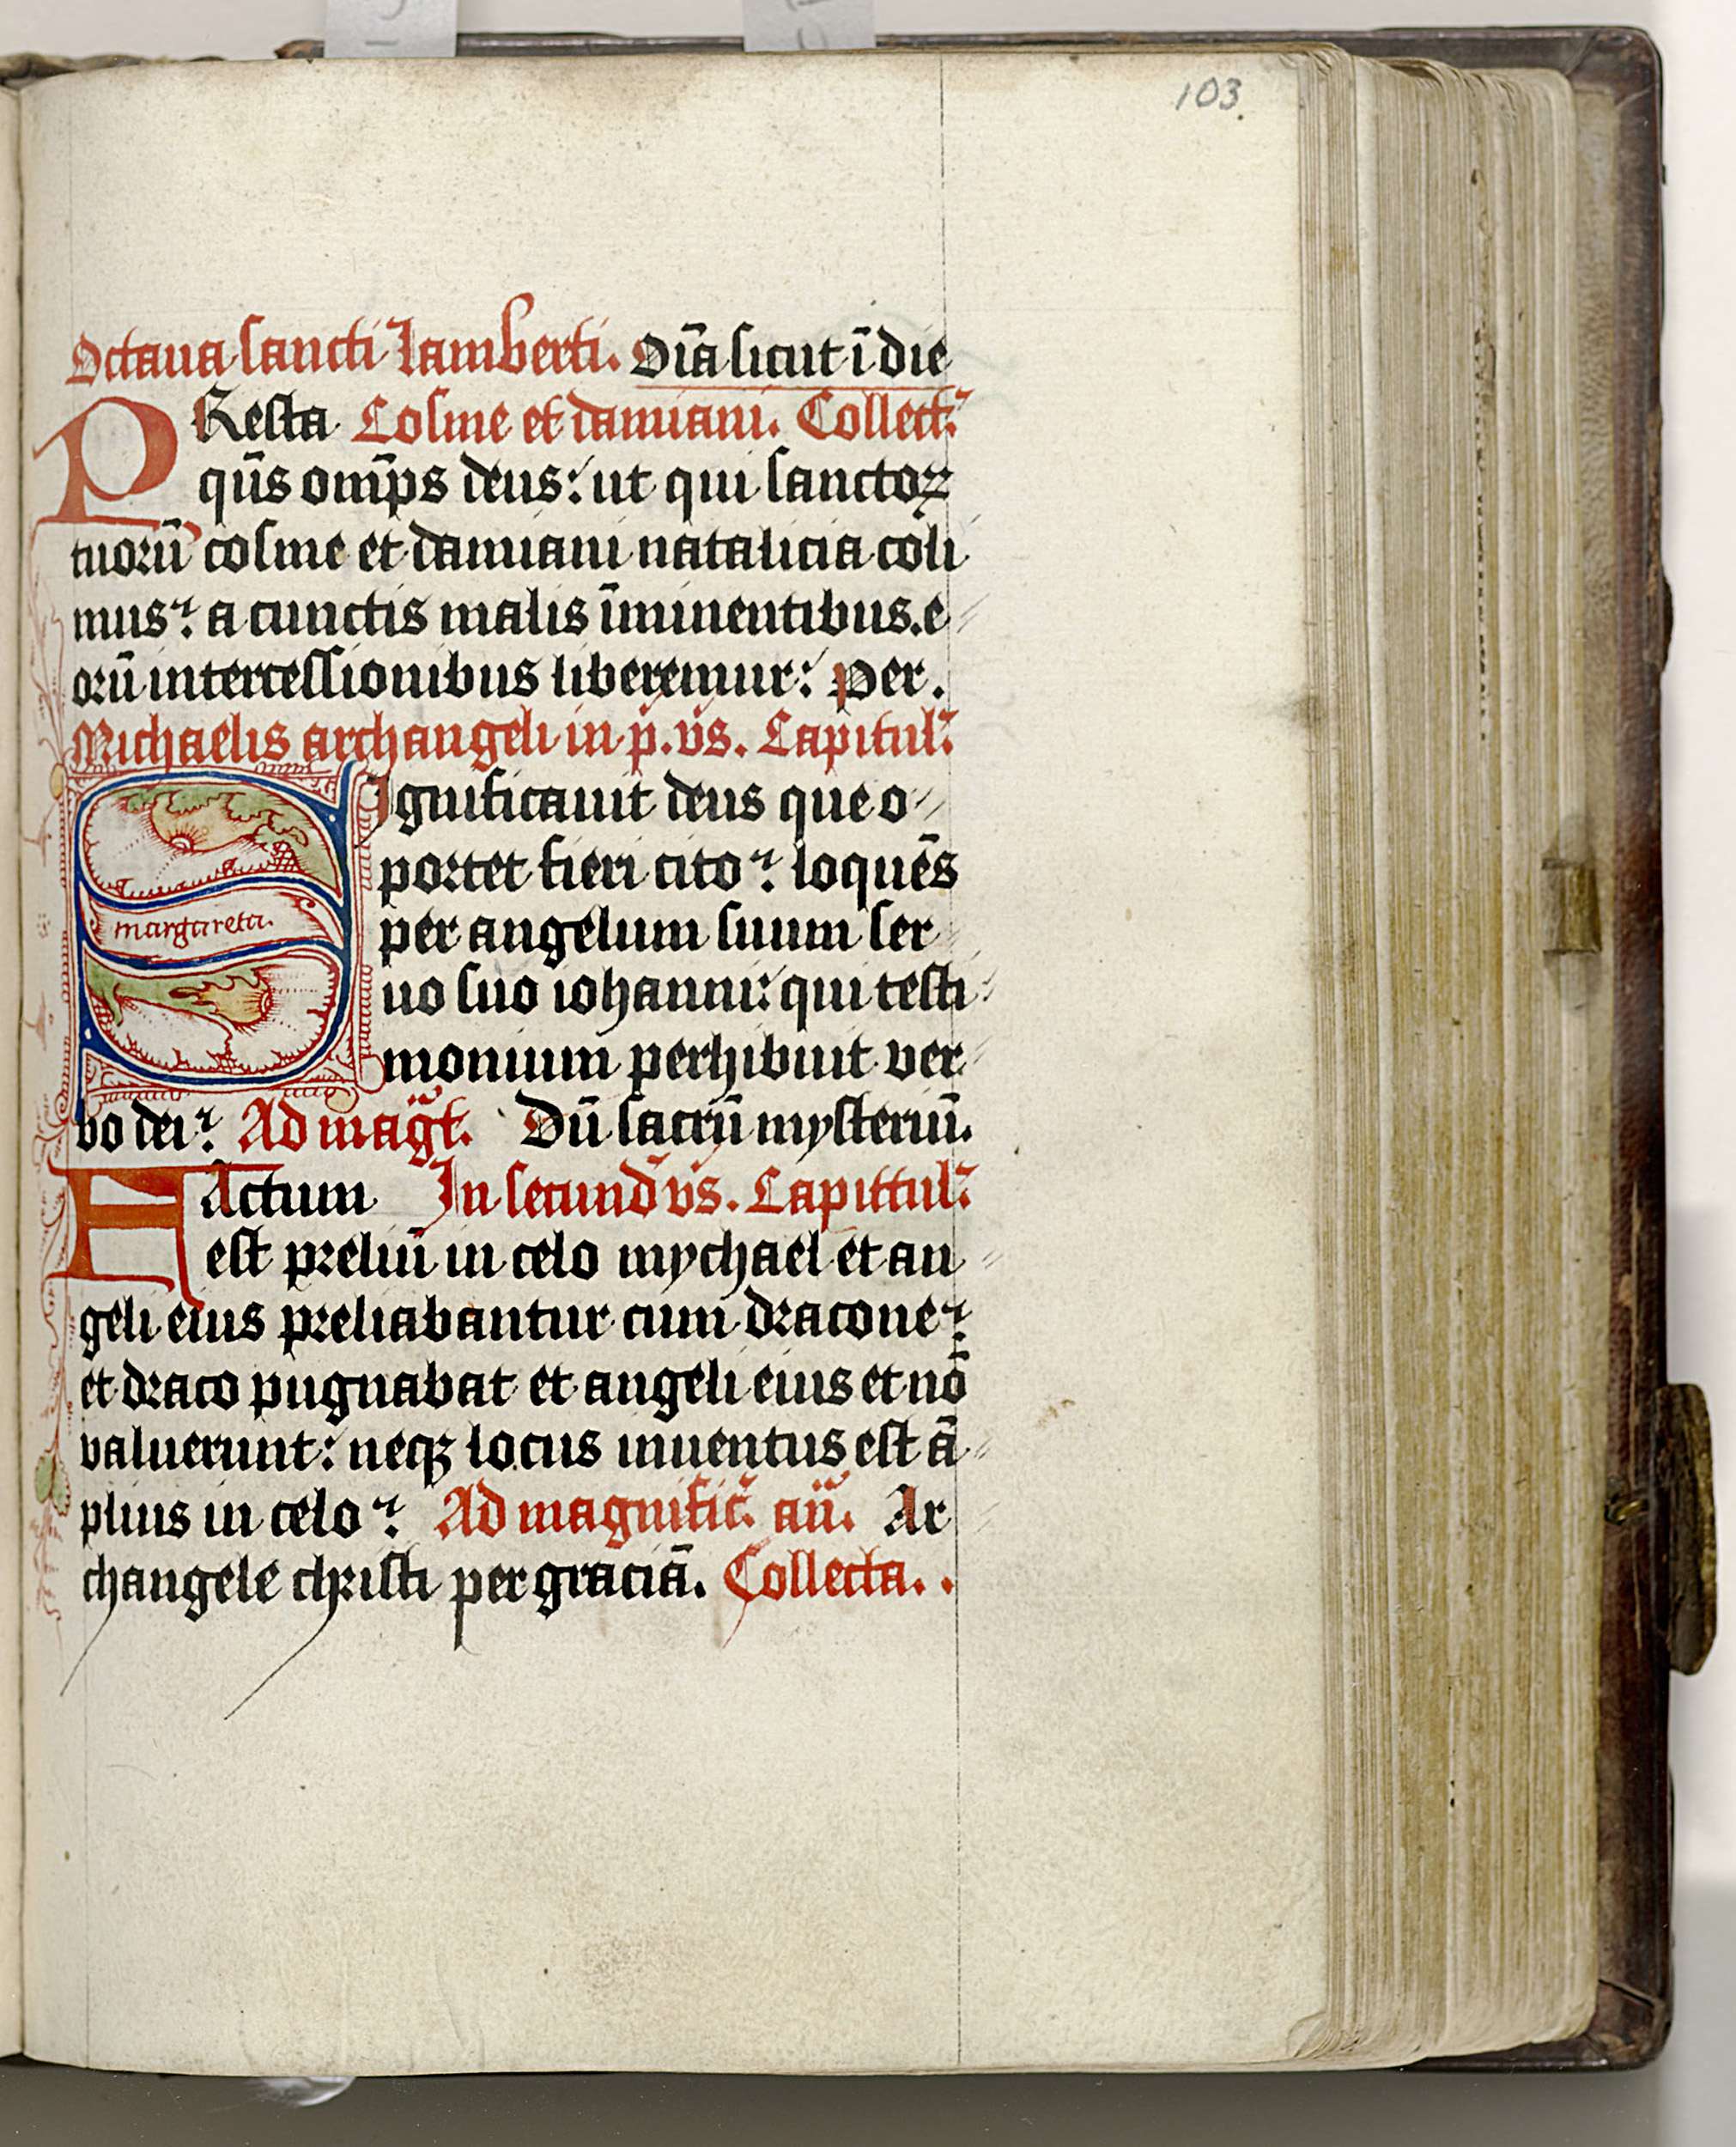 103.
Octaua sancti lamberti. Oīa sicut ī die
PResta Cosme et damiani. Collect.
qūs omp̄s deus: ut qui sanctoꝝ
tuorū cosme et damiani natalicia coli
mus: a cunctis malis īminentibus. e
orū intercessionibus liberemur: per.
Michaelis archangeli in p. vs̄. Capitul.
SIgnificauit deus que o
portet fieri cito: loquēs
per angelum suum ser
margareta.
uo suo iohanni: qui testi
monium perhibuit ver
bo dei: Ad magt. Dū sacrū mysteriū.
FActum In secund vs̄. Capittul.
est preliū in celo mychael et an
geli eius preliabantur cum dracone:
et draco pugnabat et angeli eius et nō
valuerunt: neqꝫ locus inuentus est ā
plius in celo: Ad magnific. añ. Ar
changele christi per graciā. Collecta..